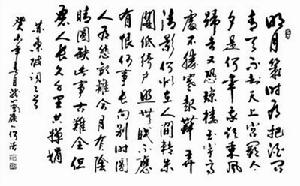 明月幾時有把酒問
青天不知天上宮闕今
夕是何年我欲乘風
歸去又恐瓊樓玉宇高
處不勝寒起舞弄
清影何似在人間轉朱
閣低綺戶照無眠不應
有恨何事長向別時圓
人有悲歡離合月有陰
晴圓缺此事古難全但
願人長久千里共嬋娟
蘇東坡詞